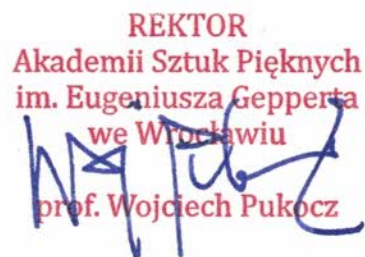 REKTOR
Akademii Sztuk Pięknych
im. Eugeniusza Gepperta
we Wrocławiu
prof. Wojciech Pukocz